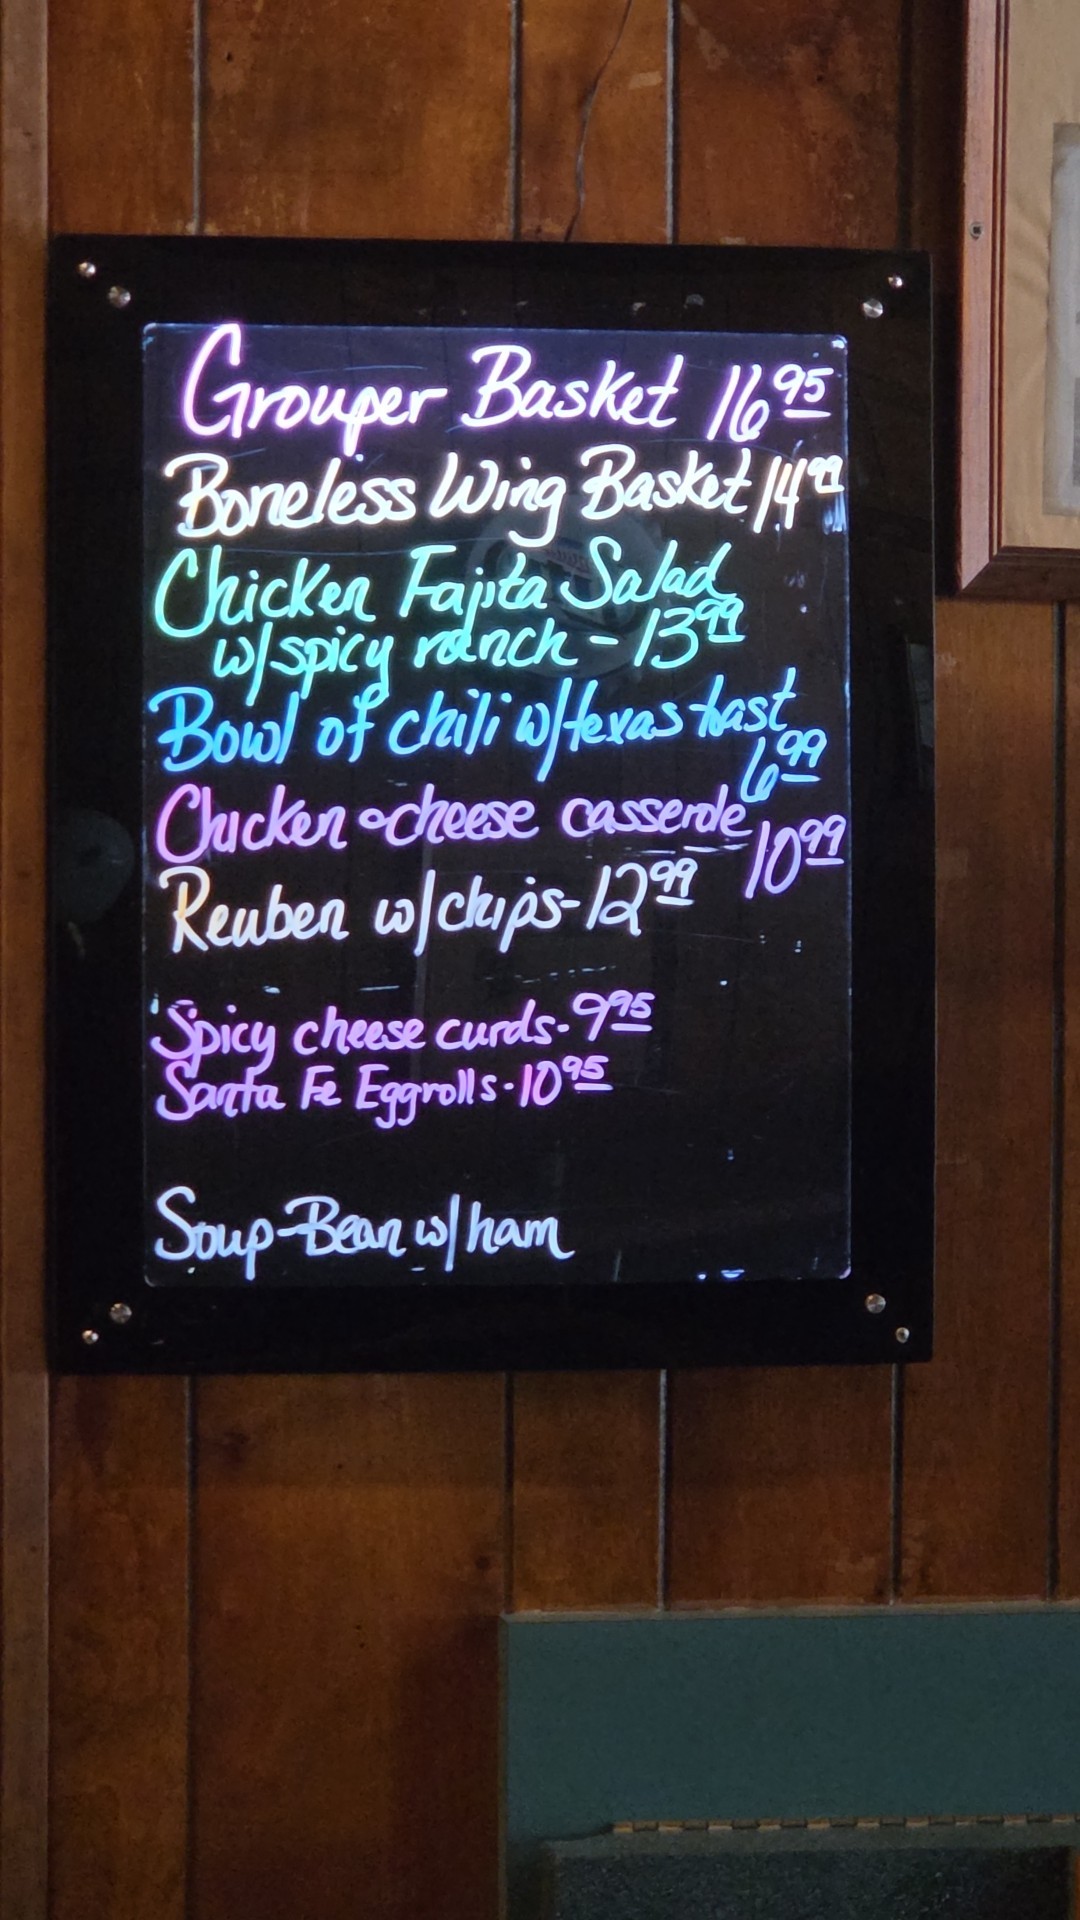 Grouper Basket 16 95
Boneless Wing Basket 14 99
Chicken Fajita Salad
w/spicy ranch - 13 99
Bowl of chili w/texas toast
6 99
Chicken & cheese casserole
10 99
Reuben w/chips - 12 99
Spicy cheese curds - 9 95
Santa Fe Eggrolls - 10 95
Soup-Bean w/ham